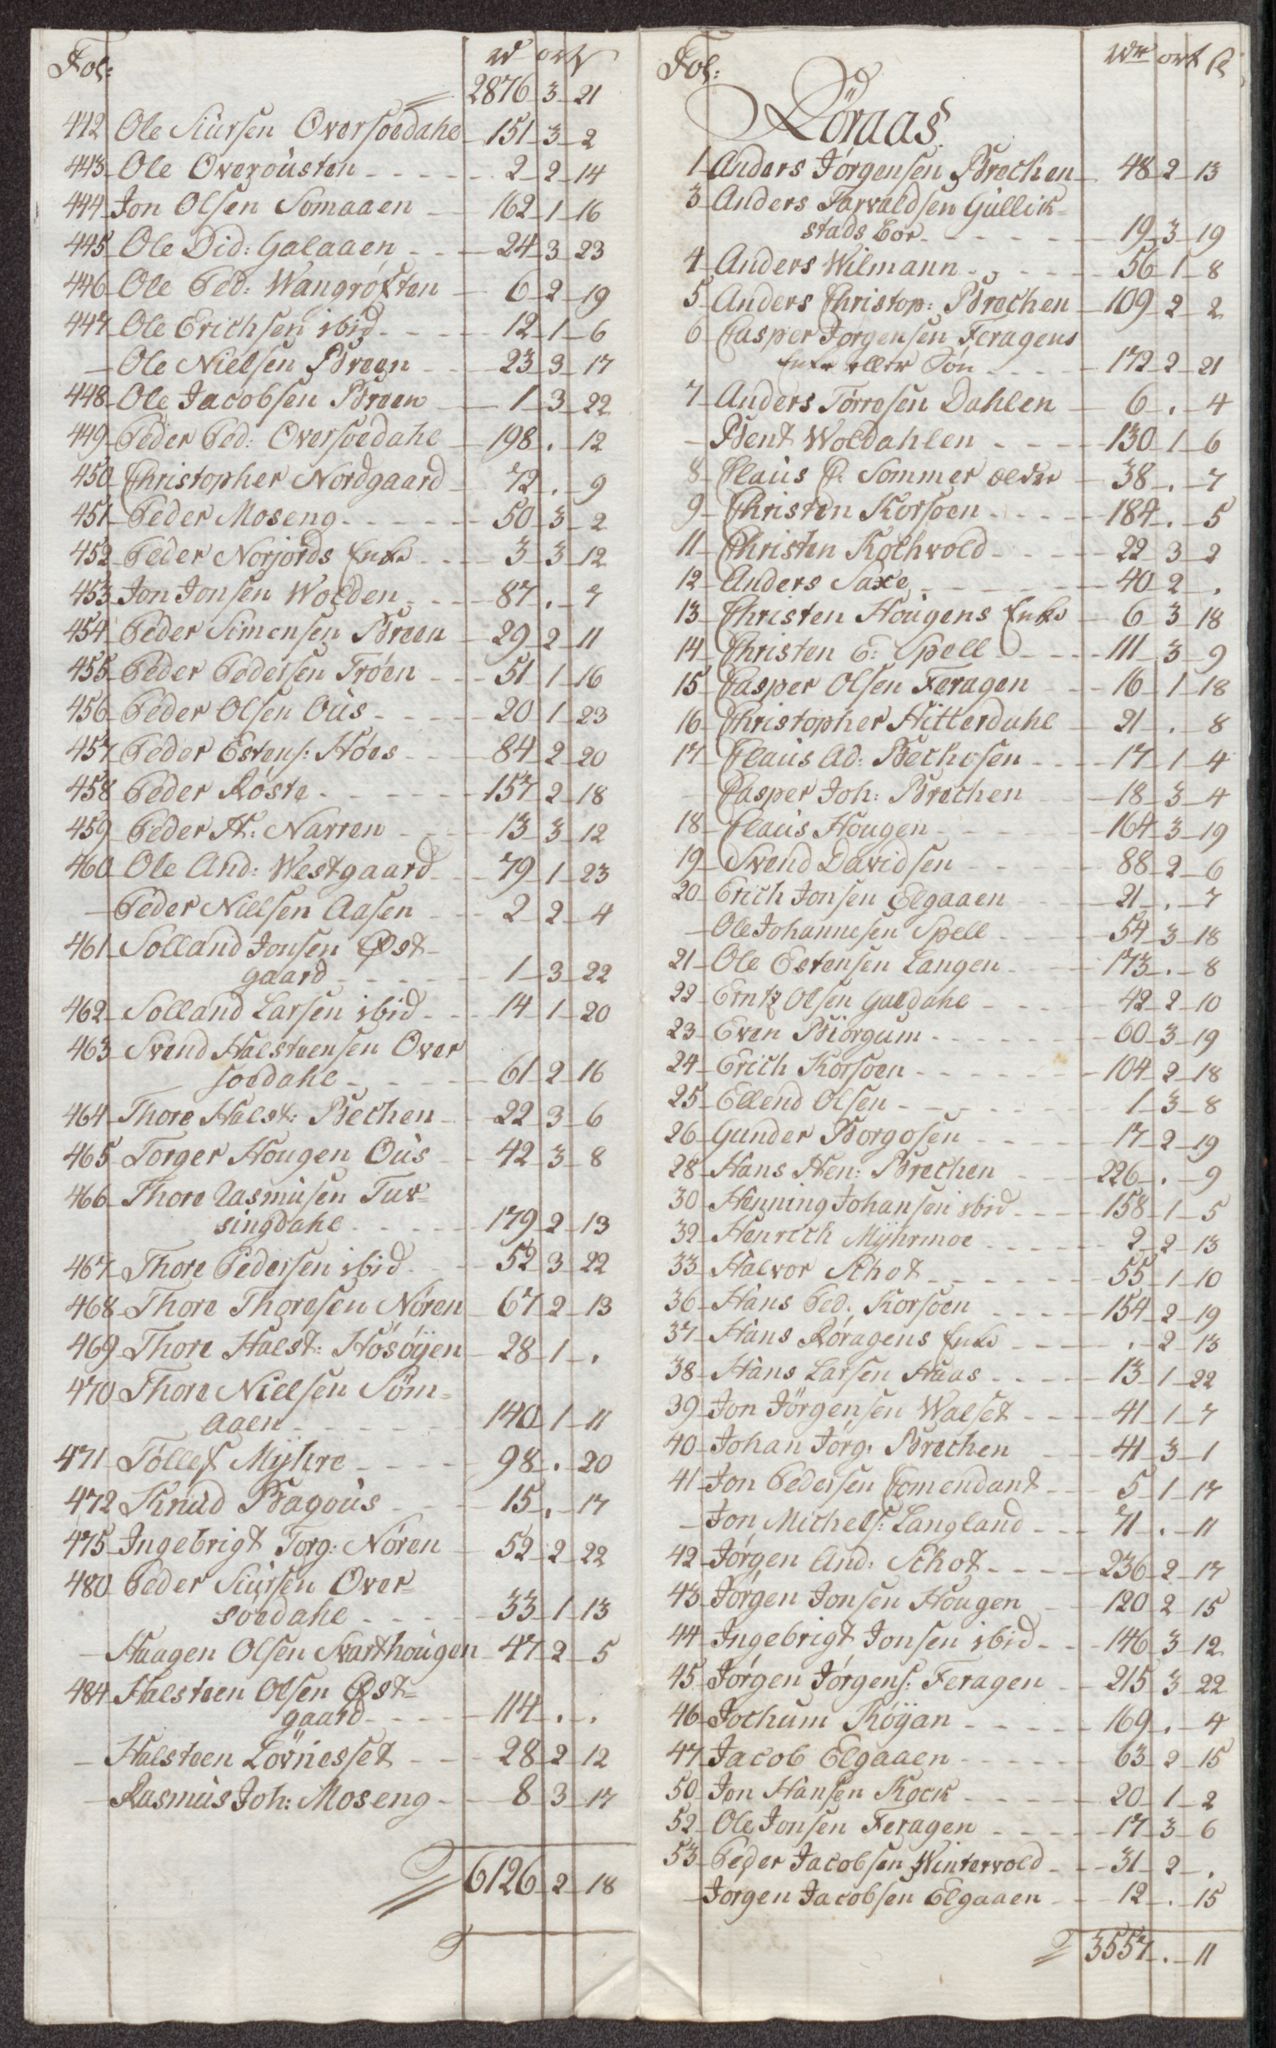 Fol: rd ort ß
2876 3 21
442 Ole Siursen Oversoedahl 151 3 2
443 Ole Overousten 2 2 14
444 Jon Olsen Somaaen 162 1 16
445 Ole Did: Galaaen 24 3 23
446 Ole Ped: Wangrøften 6 2 19
447 Ole Erichsen ibid 12 1 6
Ole Nielsen Breen 23 3 17
448 Ole Jacobsen Breen 1 3 22
449 Peder Ped: Oversoedahl 198 . 12
450 Christopher Nordgaard 72 . 9
451 Peder Moseng 50 3 2
452 Peder Norjords Enke 3 3 12
453 Jon Jonsen Wolden 87 . 7
454 Peder Simensen Breen 29 2 11
455 Peder Pedersen Trøen 51 1 16
456 Peder Olsen Ous 20 1 23
457 Peder Estens: Høes 84 2 20
458 Peder Røste 157 2 18
459 Peder H: Narren 13 3 12
460 Ole And: Westgaard 79 1 23
Peder Nielsen Aasen 2 2 4
461 Solland Jonsen Øst-
gaard 1 3 22
462 Solland Larsen ibid 14 1 20
463 Svend Halsteensen Over
soedahl 61 2 16
464 Thore Halst: Bechen 22 3 6
465 Torger Hougen Ous 42 3 8
466 Thore Rasmusen Tuf-
singdahl 179 2 13
467 Thore Pedersen ibid 52 3 22
468 Thore Thoresen Nøren 67 2 13
469 Thore Halst: Høsøyen 28 1 .
470 Thore Nielsen Søm-
aaen 140 1 11
471 Tøllef Myhre 98 . 20
472 Knud Bagous 15 . 17
475 Ingebrigt Torg: Nøren 52 2 22
480 Peder Siursen Over-
soedahl 33 1 13
Haagen Olsen Narthougen 47 2 5
484 Halsteen Olsen Øst-
gaard 114 . .
Halsteen Lövnesset 28 2 12
Rasmus Joh: Moseng 8 3 17
6126 2 18
Fol: rdr ort ß
Röraas
1 Anders Jørgensen Brechen 48 2 13
3 Anders Tarvaldsen Gullik-
stads Eor 19 3 19
4 Anders Wilmann 56 1 8
5 Anders Christop: Brechen 109 2 2
6 Casper Jørgensen Feragens
Enke eller Søn 172 2 21
7 Anders Torresen Dahlen 6 . 4
Bent Woldahlen 130 1 6
8 Claus P. Sommer ældre 38 . 7
9 Christen Korsoen 184 . 5
11 Christen Kothvold 22 3 2
12 Anders Saxe 40 2 .
13 Christen Hougens Enke 6 3 18
14 Christen E: Spell 111 3 9
15 Casper Olsen Feragen 16 1 18
16 Christopher Hitterdahl 21 . 8
17 Claus Ad: Bechosen 17 1 4
Casper Joh: Brechen 18 3 4
18 Claus Hougen 164 3 19
19 Svend Davidsen 88 2 6
20 Erich Jonsen Elgaaen 21 . 7
Ole Johannesen Spell 54 3 18
21 Ole Estensen Langen 173 . 8
22 Erntz Olsen Guldahl 42 2 10
23 Even Biörgum 60 3 19
24 Erich Korsoen 104 2 18
25 Ellend Olsen 1 3 8
26 Gunder Borgosen 17 2 19
28 Hans Hen: Brechen 226 . 9
30 Henning Johansen ibid 158 1 5
32 Henrich Myhrmoe 2 2 13
33 Halvor Schot 55 1 10
36 Hans Ped: Korsoen 154 2 19
37 Hans Røragens Enke . 2 13
38 Hans Larsen Haas 13 1 22
39 Jon Jörgensen Walset 41 1 7
40 Johan Jörg: Brechen 41 3 1
41 Jon Pedersen Comendant 5 1 17
Jon Michels: Langland 71 . 11
42 Jørgen And: Schot 236 2 17
43 Jørgen Jonsen Hougen 120 2 15
44 Ingebrigt Jonsen ibid 146 3 12
45 Jørgen Jørgens: Feragen 215 3 22
46 Jochum Køyan 169 . 4
47 Jacob Elgaaen 63 2 15
50 Jon Hansen Kock 20 1 2
52 Ole Jonsen Feragen 17 3 6
53 Peder Jacobsen Wintervold 31 2 .
Jørgen Jacobsen Elgaaen 12 . 15
3557 . 11